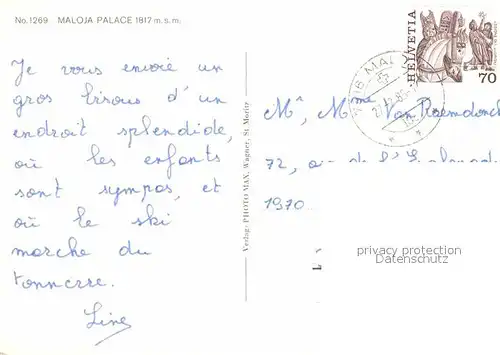 No. 1269 MALOJA PALACE 1817 m.s.m.
HELVETIA
70
Je vous envoie un
gros bisous d'un
endroit splendide,
où les enfants
sont sympas, et
où le ski
marche du
tonnerre.
Line
Verlag: PHOTO MAX, Wagner, St. Moritz
Mr, Mme Van Roemdonck
72, av. de l'
1970
privacy protection
Datenschutz